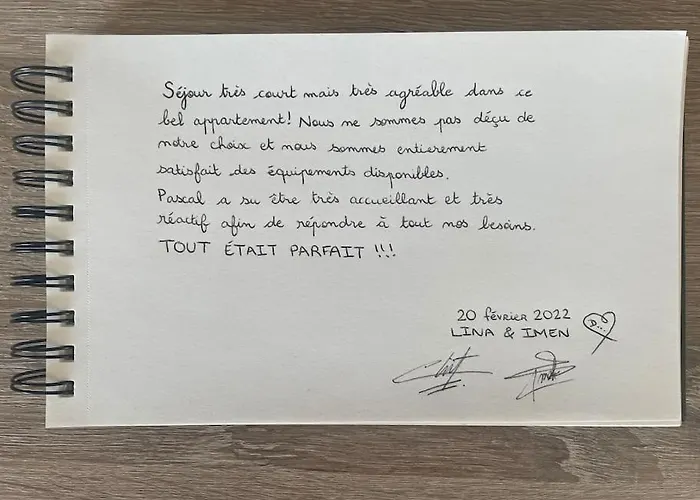 Séjour très court mais très agréable dans ce
bel appartement! Nous ne sommes pas déçu de
notre choix et nous sommes entierement
satisfait des équipements disponibles.
Pascal a su être très accueillant et très
réactif afin de répondre à tout nos besoins.
TOUT ÉTAIT PARFAIT !!!
20 février 2022
LINA & IMEN